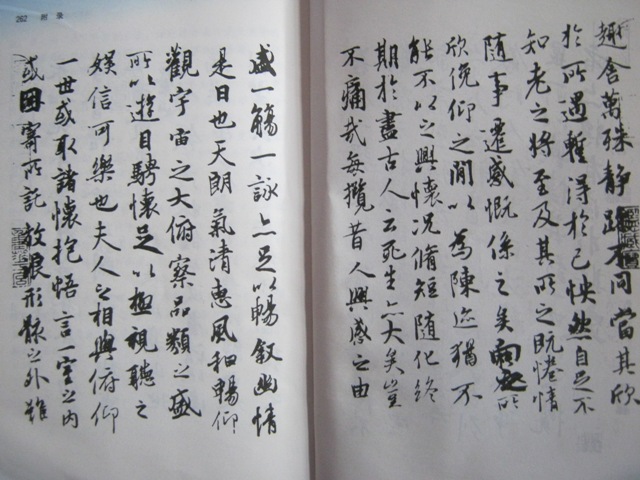 262 附 录
盛一觴一詠亦足以暢敘幽情
是日也天朗氣清惠風和暢仰
觀宇宙之大俯察品類之盛
所以遊目騁懷足以極視聽之
娛信可樂也夫人之相與俯仰
一世或取諸懷抱悟言一室之內
或因寄所託放浪形骸之外雖
趣舍萬殊靜躁不同當其欣
於所遇暫得於己怏然自足不
知老之將至及其所之既惓情
隨事遷感慨係之矣向之所
欣俛仰之閒以為陳迹猶不
能不以之興懷況脩短隨化終
期於盡古人云死生亦大矣豈
不痛哉每攬昔人興感之由